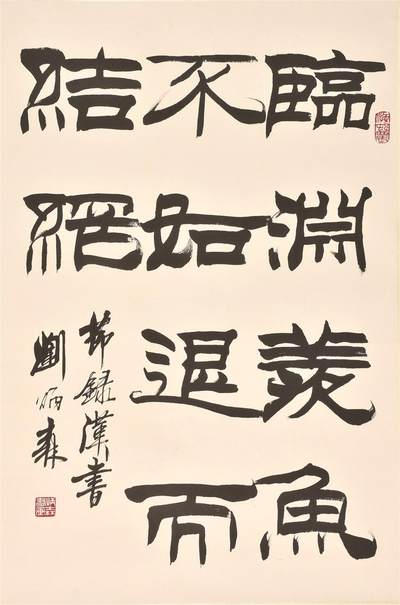 臨淵羨魚
不如退而
結網
節錄漢書
劉炳森